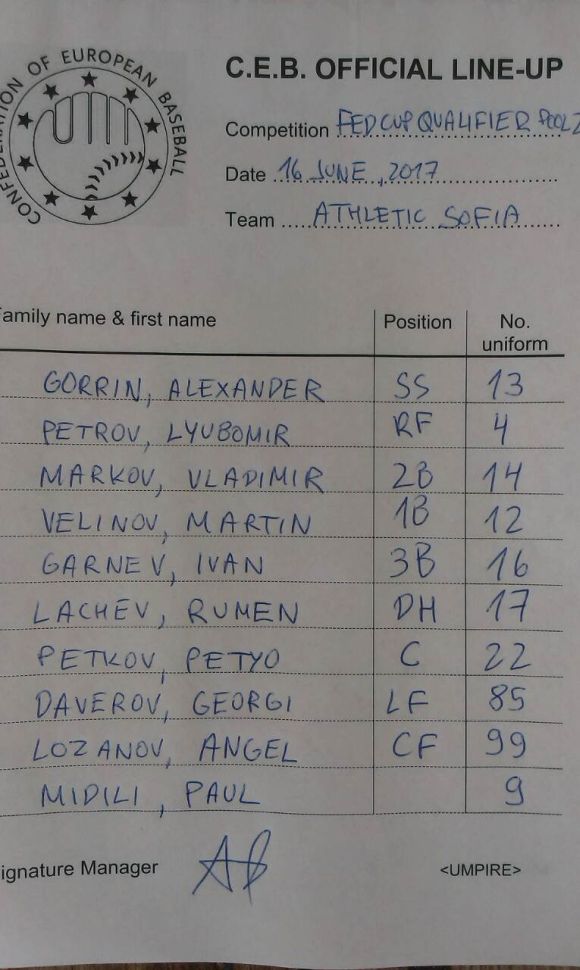 CONFEDERATION OF EUROPEAN BASEBALL
C.E.B. OFFICIAL LINE-UP
Competition FED CUP QUALIFIER POOL 2
Date 16 JUNE, 2017
Team ATHLETIC SOFIA
amily name & first name Position No. uniform
GORRIN, ALEXANDER SS 13
PETROV, LYUBOMIR RF 4
MARKOV, VLADIMIR 2B 14
VELINOV, MARTIN 1B 12
GARNEV, IVAN 3B 16
LACHEV, RUMEN DH 17
PETKOV, PETYO C 22
DAVEROV, GEORGI LF 85
LOZANOV, ANGEL CF 99
MIDILI, PAUL 9
ignature Manager <UMPIRE>